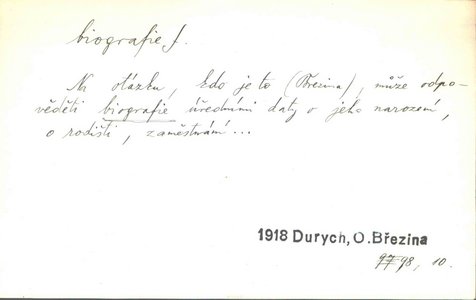 biografie, f.
Na otázku, kdo je to (Březina), může odpo-
věděti biografie úředními daty o jeho narození,
o rodišti, zaměstnání...
1918 Durych, O. Březina
97 98, 10.